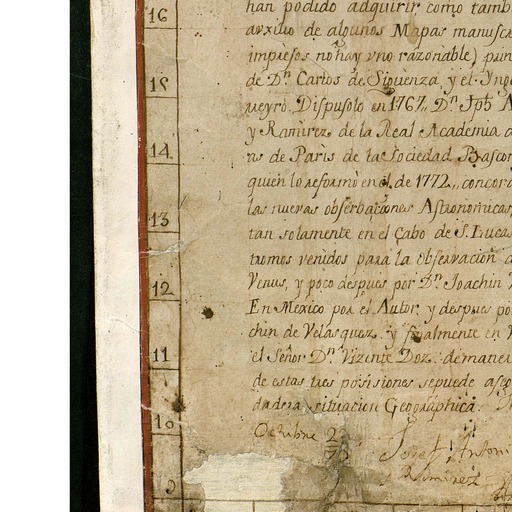 16
han podido adquirir como tamb
auxilio de algunos Mapas manusc
impresos no hay vno razonable) pun
15
de Dn. Carlos de Siguenza y el Yng
ueyro. Dispusolo en 1767,, Dn. Jph A
y Ramirez de la Real Academia d
14
as de Paris de la Sociedad Bascon
quien lo reformó en el de 1772,, concord
las nuevas obserbaciones Astronomicas
13
tan solamente en el Cabo de S. Lucas
tronomos venidos para la observacion d
Venus, y poco despues por Dn. Joachin V
12
En Mexico por el Autor, y despues po
chin de Velasquez y finalmente en V
11
el Señor Dn. Vizente Doz: de manera
de estas tres posisiones se puede ase
dadera situacion Geographica.
10
Octubre 2
Josef Antoni
Ramirez
9